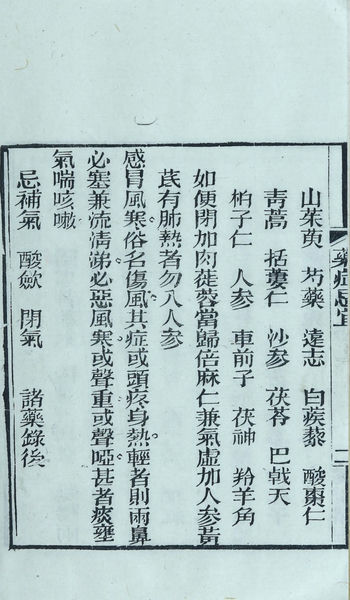 藥症忌宜
二
山茱萸　芍藥　遠志　白蒺藜　酸棗仁
靑蒿　括蔞仁　沙參　茯苓　巴戟天
栢子仁　人參　車前子　茯神　羚羊角
如便閉加肉蓯蓉當歸倍麻仁兼氣虛加人參黃
芪有肺熱者勿入人參
感冒風寒俗名傷風其症或頭疼身熱輕者則兩鼻
必塞兼流淸涕必惡風寒或聲重或聲啞甚者痰壅
氣喘咳嗽
忌補氣　酸斂　閉氣　諸藥錄後